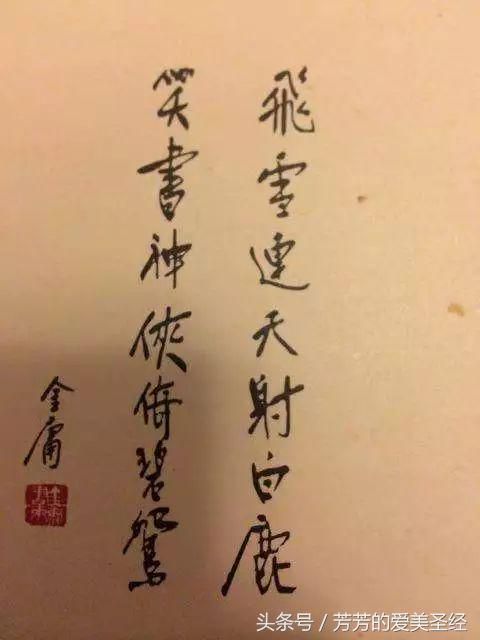 飛雪連天射白鹿
笑書神俠倚碧鴛
金庸
头条号 / 芳芳的爱美圣经